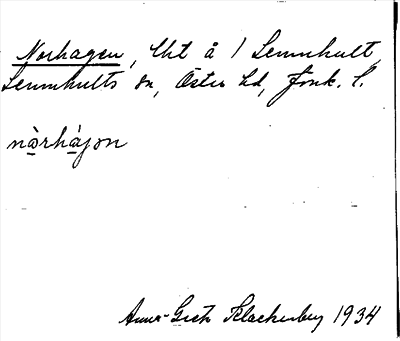 Norhagen, lht å 1 Lemnhult,
Lemnhults sn, Östra hd, Jönk. l.
nòrhájon
Anna-Greta Klackenberg 1934